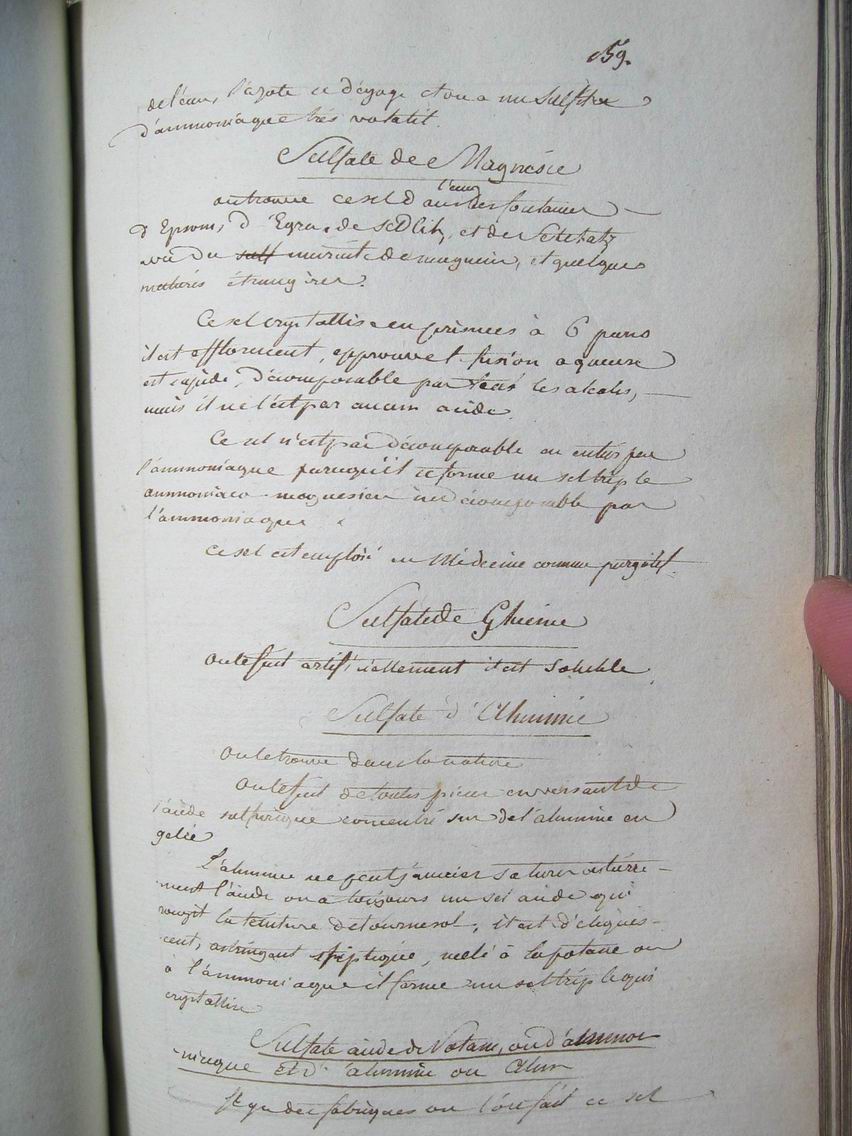 159.
de l'eau, l'azote se dégage et on a un sulfite
d'ammoniaque très volatil.
Sulfate de Magnésie
on trouve ce sel dans l'eau des fontaines
d'Epsom, d'Egra, de sedlitz, et de
du muriate de magnésie, et quelques
matières étrangères.
Ce sel crystallise en prismes à 6 pans
il est efflorescent, epprouve l fusion aqueuse
est rapide, décomposable par les alcalis,
mais il ne l'est par aucun acide.
Ce sel n'est pas décomposable en entier par
l'ammoniaque parcequ'il se forme un sel triple
ammoniaco-magnesien indécomposable par
l'ammoniaque
ce sel est emploié en Médecine comme purgatif
Sulfate de Glucine
on le fait artificiellement il est soluble
Sulfate d'Alumine
on le trouve dans la nature
on le fait de toutes pièces en versant de
l'acide sulfurique concentré sur de l'alumine en
gelée
L'alumine ne peut jamais saturer entière-
ment l'acide on a toujours un sel acide qui
rougit la teinture de tournesol, il est déliques-
cent, astringent stiptique, melé à la potasse ou
à l'ammoniaque il forme un sel triple qui
crystallise
Sulfate acide de Potasse, ou d'ammo
niaque et d'alumine ou Alun
Il y a des fabriques ou l'on fait ce sel